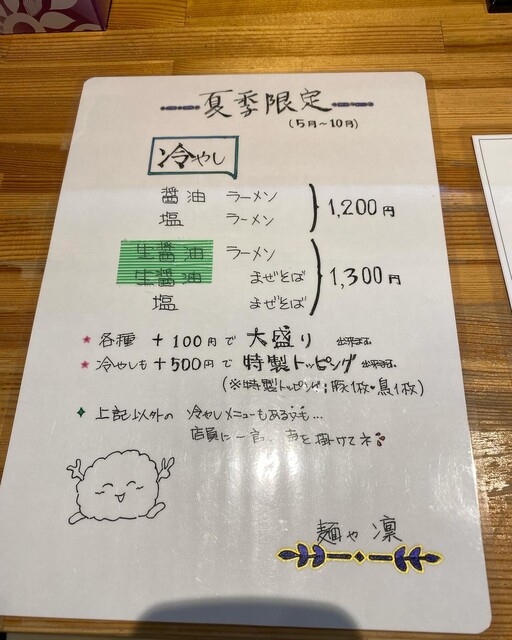 夏季限定
(5月〜10月)
冷やし
醤油 ラーメン
塩 ラーメン
1,200円
生醤油 ラーメン
生醤油 まぜそば
塩 まぜそば
1,300円
★各種 +100円で 大盛り 出来ます。
★冷やしも+500円で 特製トッピング 出来ます。
(※特製トッピング;豚1枚・鳥1枚)
✦上記以外の 冷やしメニューもあるかも…
店員に一言、声を掛けてネ
麺や 凛